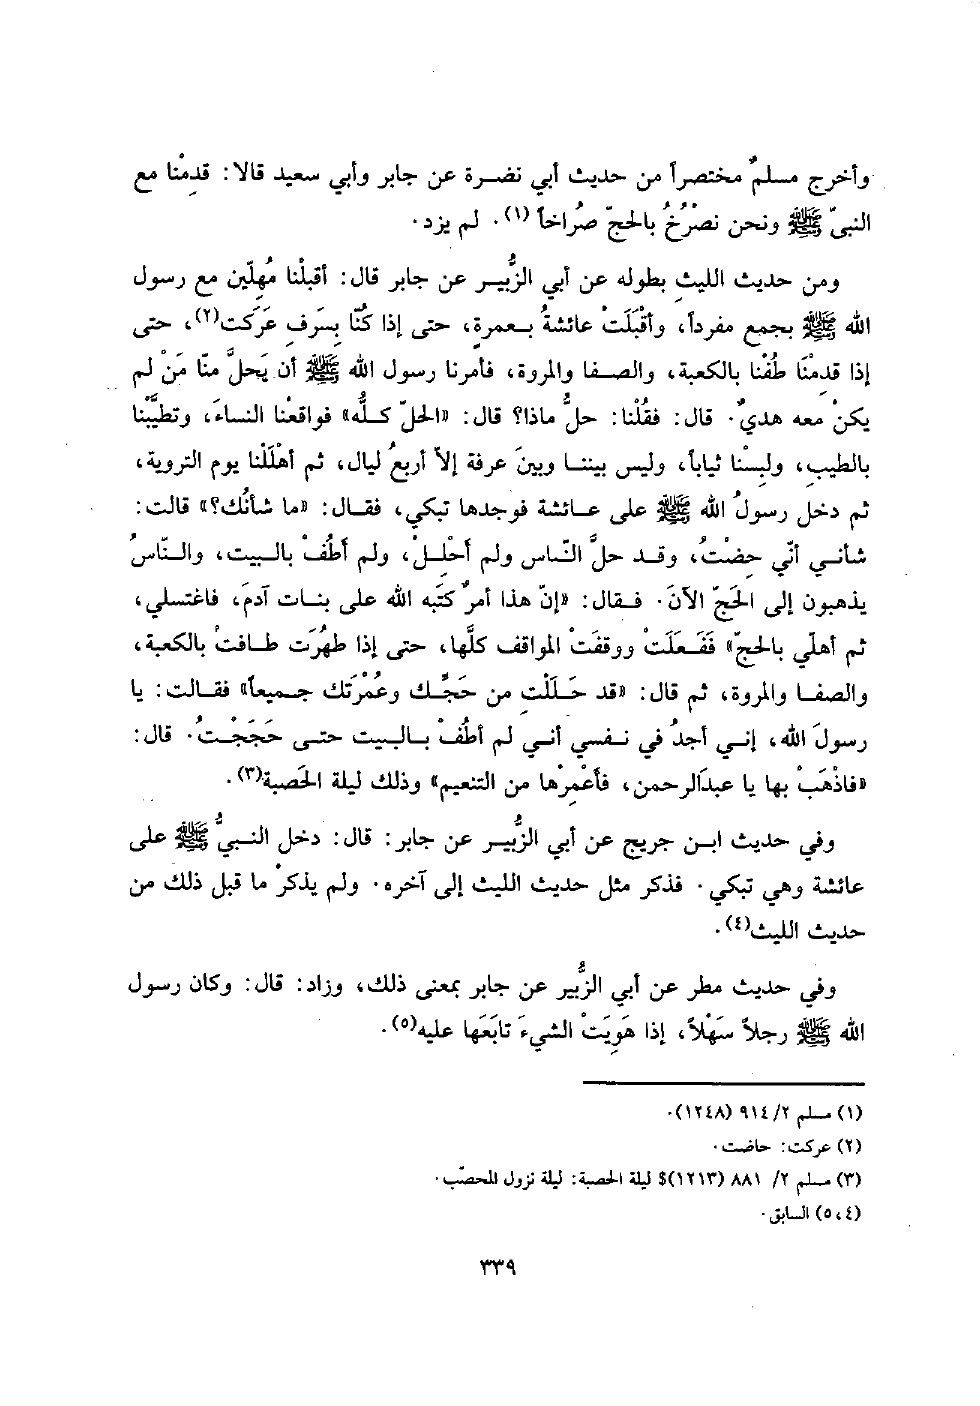 وأخرج مسلمٌ مختصراً من حديث أبي نضرة عن جابر وأبي سعيد قالا: قدِمْنا مع
النبيّ ﷺ ونحن نصْرُخُ بالحجّ صُراخاً(١). لم يزد.
ومن حديث الليثِ بطوله عن أبي الزُّبيـر عن جابر قال: أقبلْنا مُهِلّين مع رسول
الله ﷺ بحجٍ مفرداً، وأقْبَلَتْ عائشةُ بعمرةٍ، حتى إذا كُنّا بِسَرِفِ عَرَكَت(٢)، حتى
إذا قدمْنَا طُفْنا بالكعبة، والصفا والمروة، فأمرنا رسول الله ﷺ أن يَحِلَّ منّا مَنْ لم
يكنْ معه هديٌ. قال: فقُلْنا: حلُّ ماذا؟ قال: «الحلّ كلُّه» فواقعْنا النساءَ، وتطيَّبْنا
بالطيبِ، ولبِسْنا ثياباً، وليس بيننا وبينَ عرفة إلاّ أربعُ ليال، ثم أهْلَلْنا يوم التروية،
ثم دخل رسولُ الله ﷺ على عائشة فوجدها تبكي، فقال: «ما شأنُك؟» قالت:
شأني أنّي حِضْتُ، وقد حلَّ النّاس ولم أحْلِلْ، ولم أطُفْ بالبيت، والنّاسُ
يذهبون إلى الحَجّ الآنَ. فقال: «إنّ هذا أمرٌ كتَبه الله على بنات آدمَ، فاغتسلي،
ثم أهلّي بالحجّ» فَفَعَلَتْ ووقفَتْ المواقف كلَّها، حتى إذا طهُرَت طافتْ بالكعبة،
والصفا والمروة، ثم قال: «قد حَلَلْتِ من حَجِّك وعُمْرَتك جميعاً» فقالت: يا
رسولَ الله، إني أجدُ في نفسي أني لم أطُفْ بالبيت حتى حَجَجْتُ. قال:
«فاذْهَبْ بها يا عبدَالرحمن، فأعْمِرْها من التنعيم» وذلك ليلة الحَصبة(٣).
وفي حديث ابن جريج عن أبي الزُّبيـر عن جابر: قال: دخل النبيُّ ﷺ على
عائشة وهي تبكي. فذكر مثل حديث الليث إلى آخره. ولم يذكرْ ما قبل ذلك من
حديث الليث(٤).
وفي حديث مطر عن أبي الزُّبير عن جابر بمعنى ذلك، وزاد: قال: وكان رسول
الله ﷺ رجلاً سَهْلاً، إذا هَوِيَتْ الشيءَ تابَعَها عليه(٥).
(١) مسلم ٢/ ٩١٤ (١٢٤٨).
(٢) عركت: حاضت.
(٣) مسلم ٢/ ٨٨١ (١٢١٣)$ ليلة الحصبة: ليلة نزول المحصّب.
(٤، ٥) السابق.
٣٣٩